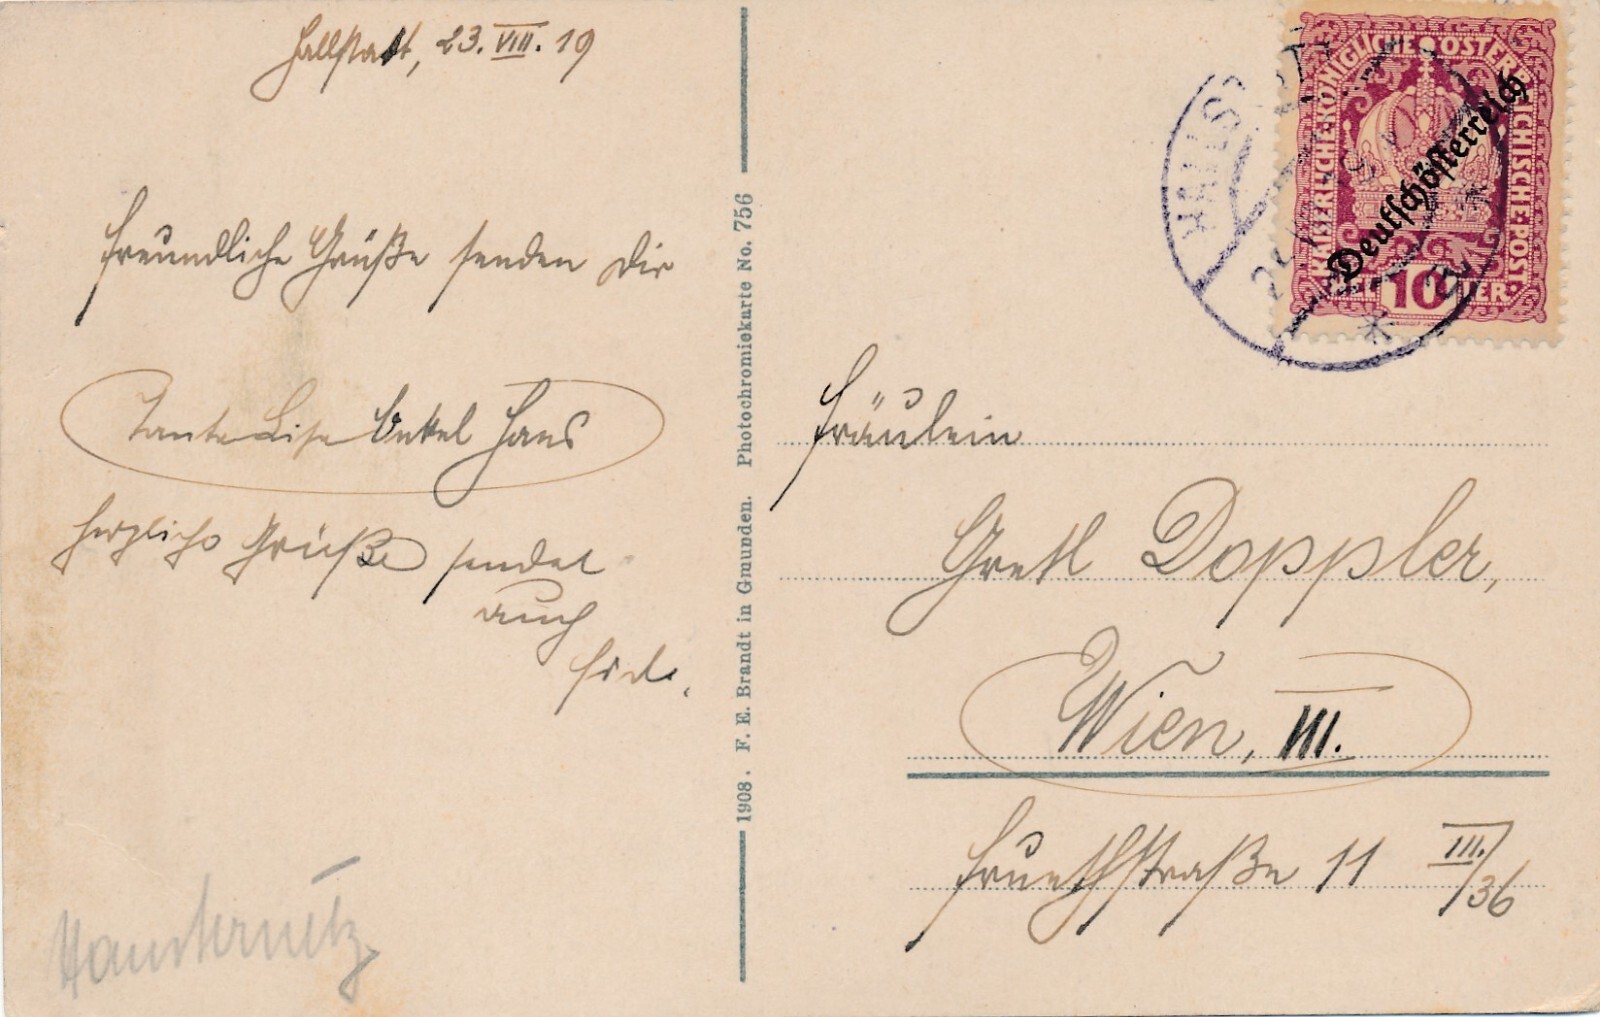 Hallstatt, 23. VIII. 19
Freundliche Grüße senden Dir
Tante Lise Onkel Hans
herzliche Grüße sendet
auch
1908. F. E. Brandt in Gmunden. Photochromiekarte No. 756
KAISERLICHE KÖNIGLICHE ÖSTERREICHISCHE POST
Deutschösterreich
10
HALLST
Fräulein
Gretl Doppler,
Wien, III.
straße 11 III./36